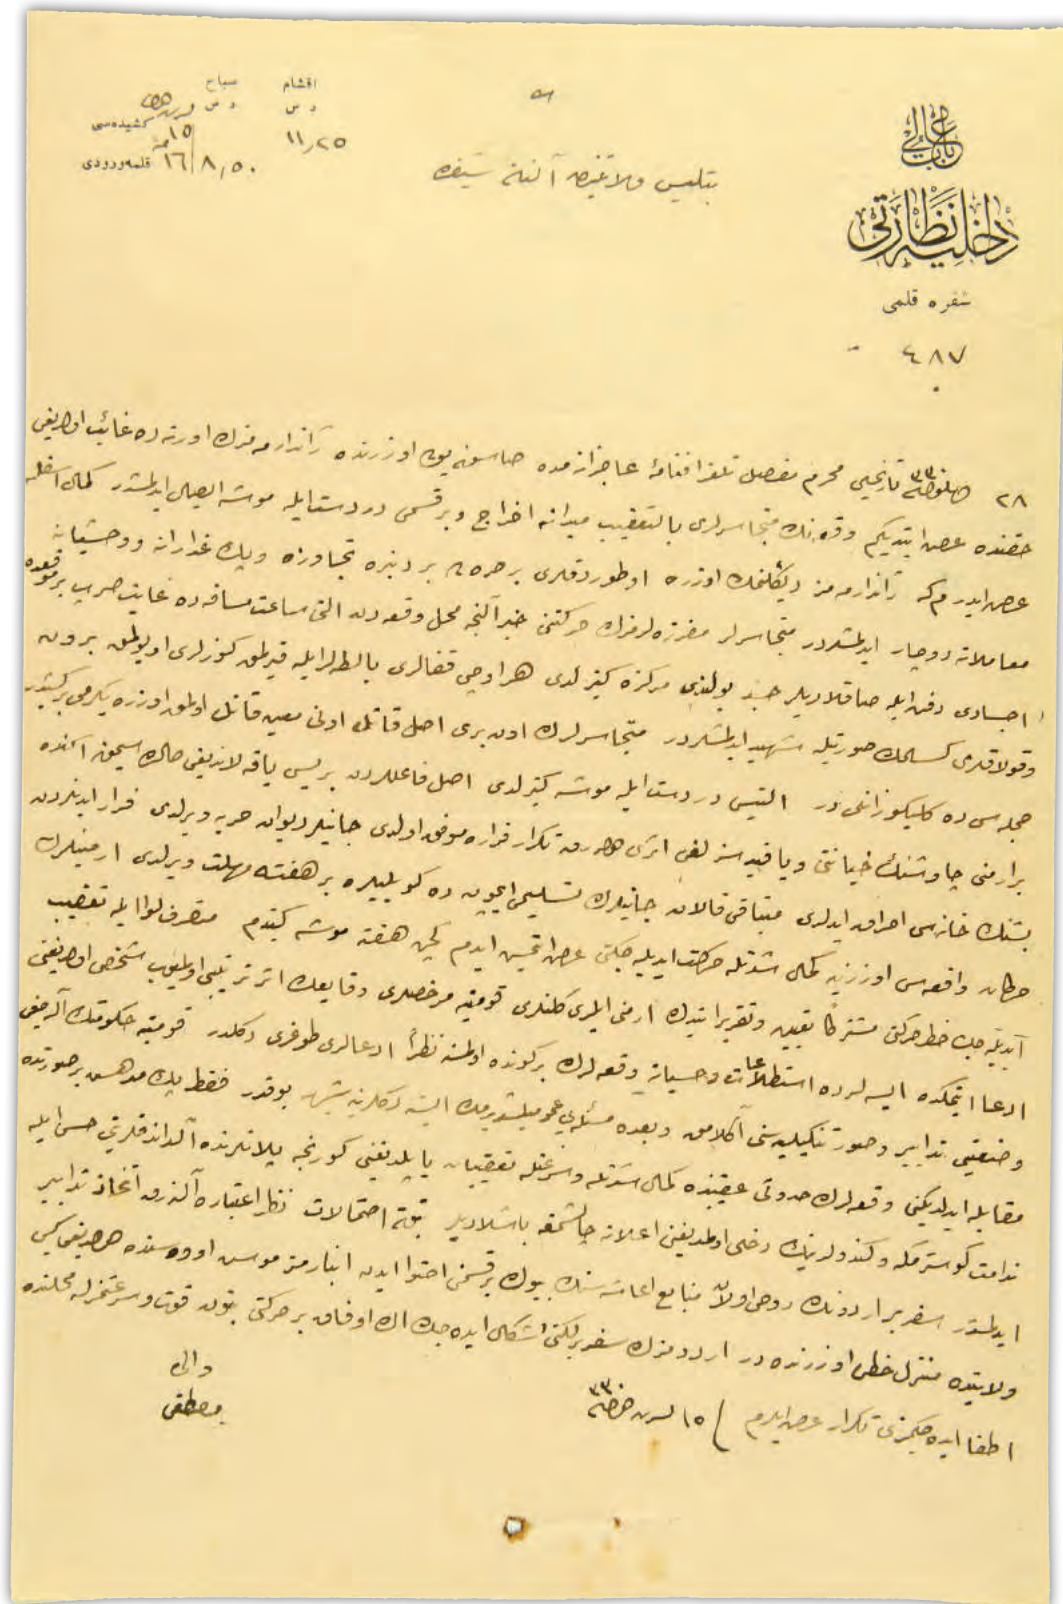 باب عالی
داخلیه نظارتی
شفره قلمی
٤٨٧
اقشام
د س
١١,٢٥
صباح
د س
٨,٥٠
كشیده‌سی ١٥
قلمه ورودی ١٦
بتلیس ولایتندن آلنان شفره
٢٨ ٣٣٠ تاریخلی محرم مفصل تلغرافنامهٔ عاجزانه‌مده یول اوزرنده ژاندارمه‌مزك اورته‌ده غائب اولدیغی
حقنده عرض ایتدیكم وقعه‌نك متجاسرلری بالتعقیب میدانه اخراج و بر قسمی دردست ایله موشه ایصال ایدلمشدر كمال اسفله
عرض ایدرم كه ژاندارمه‌مز دیكلندك اوزره اوطوردقلری بر صره‌ده بردنبره تجاوزه و پك غدارانه و وحشیانه
معاملاته دوچار ایدلمشلردر متجاسرلر مفرزه‌لرمزك حركتنی خبر آلنجه محل وقعه‌دن التی ساعت مسافه‌ده غایت صرب بر موقعده
اجسادی دفن ایله صاقلادیلر بولندی مركزه كتیرلدی هر اوچی قفالری بالطه‌لر ایله قیرلمق كوزلری اویولمق برون
و قولاقلری كسلمك صورتیله شهید ایدلمشلردر متجاسرلرك اون بری اصل قاتل اونی معین قاتل اولمق اوزره یكرمی بر كشیدر
جمله‌سی ده كلیكوزانلی در التیسی دردست ایله موشه كتیرلدی اصل فاعللردن بریسی یاقه‌لاندیغی حالده اسمنده
بر ارمنی چاوشنك خیانتی ویا قیدسزلغی اثری اوله‌رق تكرار فراره موفق اولدی جانیلر دیوان حربه ویرلدی فرار ایدنلردن
بشنك خانه‌سی احراق ایدلدی متباقی قالان جانیلرك تسلیمی ایچون ده كویلیلره بر هفته مهلت ویرلدی ارمنیلرك
وقعه‌سی اوزرینه كمال شدتله حركت ایدیله‌جكنی عرض ایتمش ایدم كچن هفته موشه كیتدم متصرف لوا ایله تعقیب
ایدیله‌جك خط حركتی مشتركاً تعیین و تقریر ایتدك ارمنی ایلری كلنلری قومیته مرخصلری وقایعك اثر ترتیبی اولمیوب شخصی اولدیغنی
ادعا ایتمكده ایسه‌لرده استطلاعات و حسیاته وقعه‌لرك بر كونده اولمسنه نظراً ادعالری طوغری دكلدر قومیته حكومتك آله‌جغی
وضعیتی تدابیر و صورت تنكیلیه‌سنی آكلامق و بعده مسئله‌یی عمومیلشدیرمك ایسته‌دكلرینه شبهه یوقدر فقط پك مدهش بر صورتده
مقابله ایدلدیكنی وقعه‌لرك حدوثی عقبنده كمال شدتله و سرعتله تعقیبات یاپلدیغنی كورنجه پلانلرنده آلداندقلرینی حس ایله
ندامت كوسترمكه و كندولرینك دخلی اولمدیغنی اعلانه چالشمغه باشلادیلر بتون احتمالات نظر اعتباره آلنه‌رق اتخاذ تدابیر
ایدلمشدر سفربر اردونك روحی اولان منابع اعاشه‌سنك بیوك بر قسمنی احتوا ایدن انبارمز موش اووه‌سنده اولدیغی كبی
ولایتده منزل خطی اوزرنده در اردومزك سفربرلكنی اشكال ایده‌جك اك اوفاق بر حركتی بتون قوت و سرعتمزله محلنده
اطفا ایده‌جكمزی تكرار عرض ایلرم ١٥ ٣٣٠
والی
مصطفی